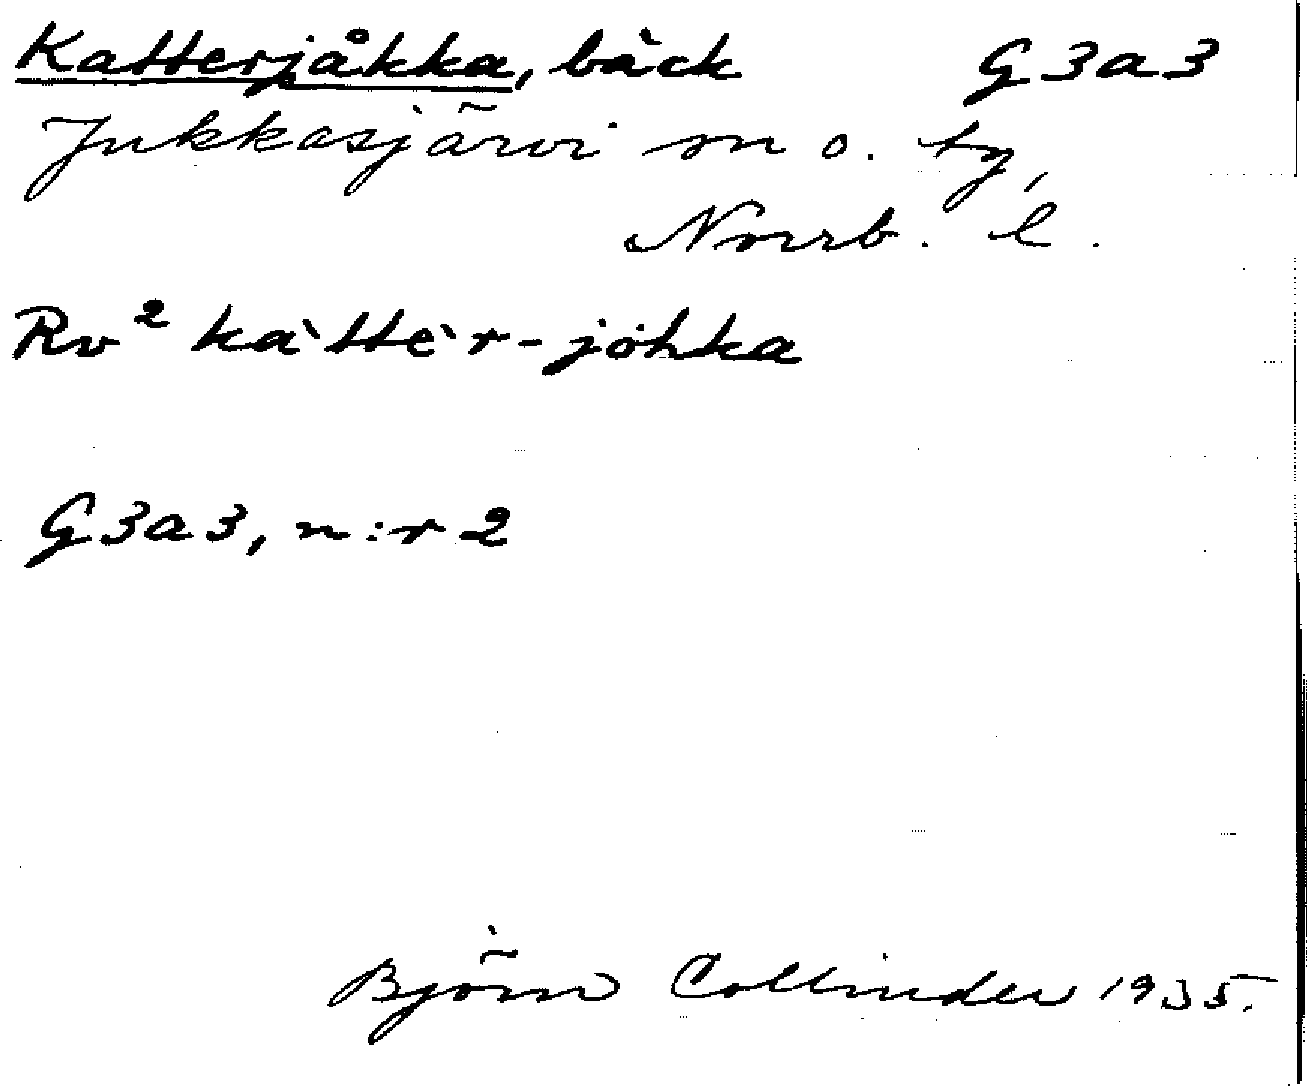 Katterjåkka, bäck G3a3
Jukkasjärvi sn o. tg,
Norrb. l.
Rv² ka`tte`r-johka
G3a3, n:r 2
Björn Collinder 1935.